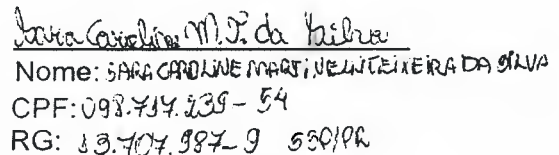 Sara Caroline M. T. da Silva
Nome: SARA CAROLINE TEIXEIRA DA SILVA
CPF: 098.737.239-54
RG: 13.707.987-9 SSP/PR